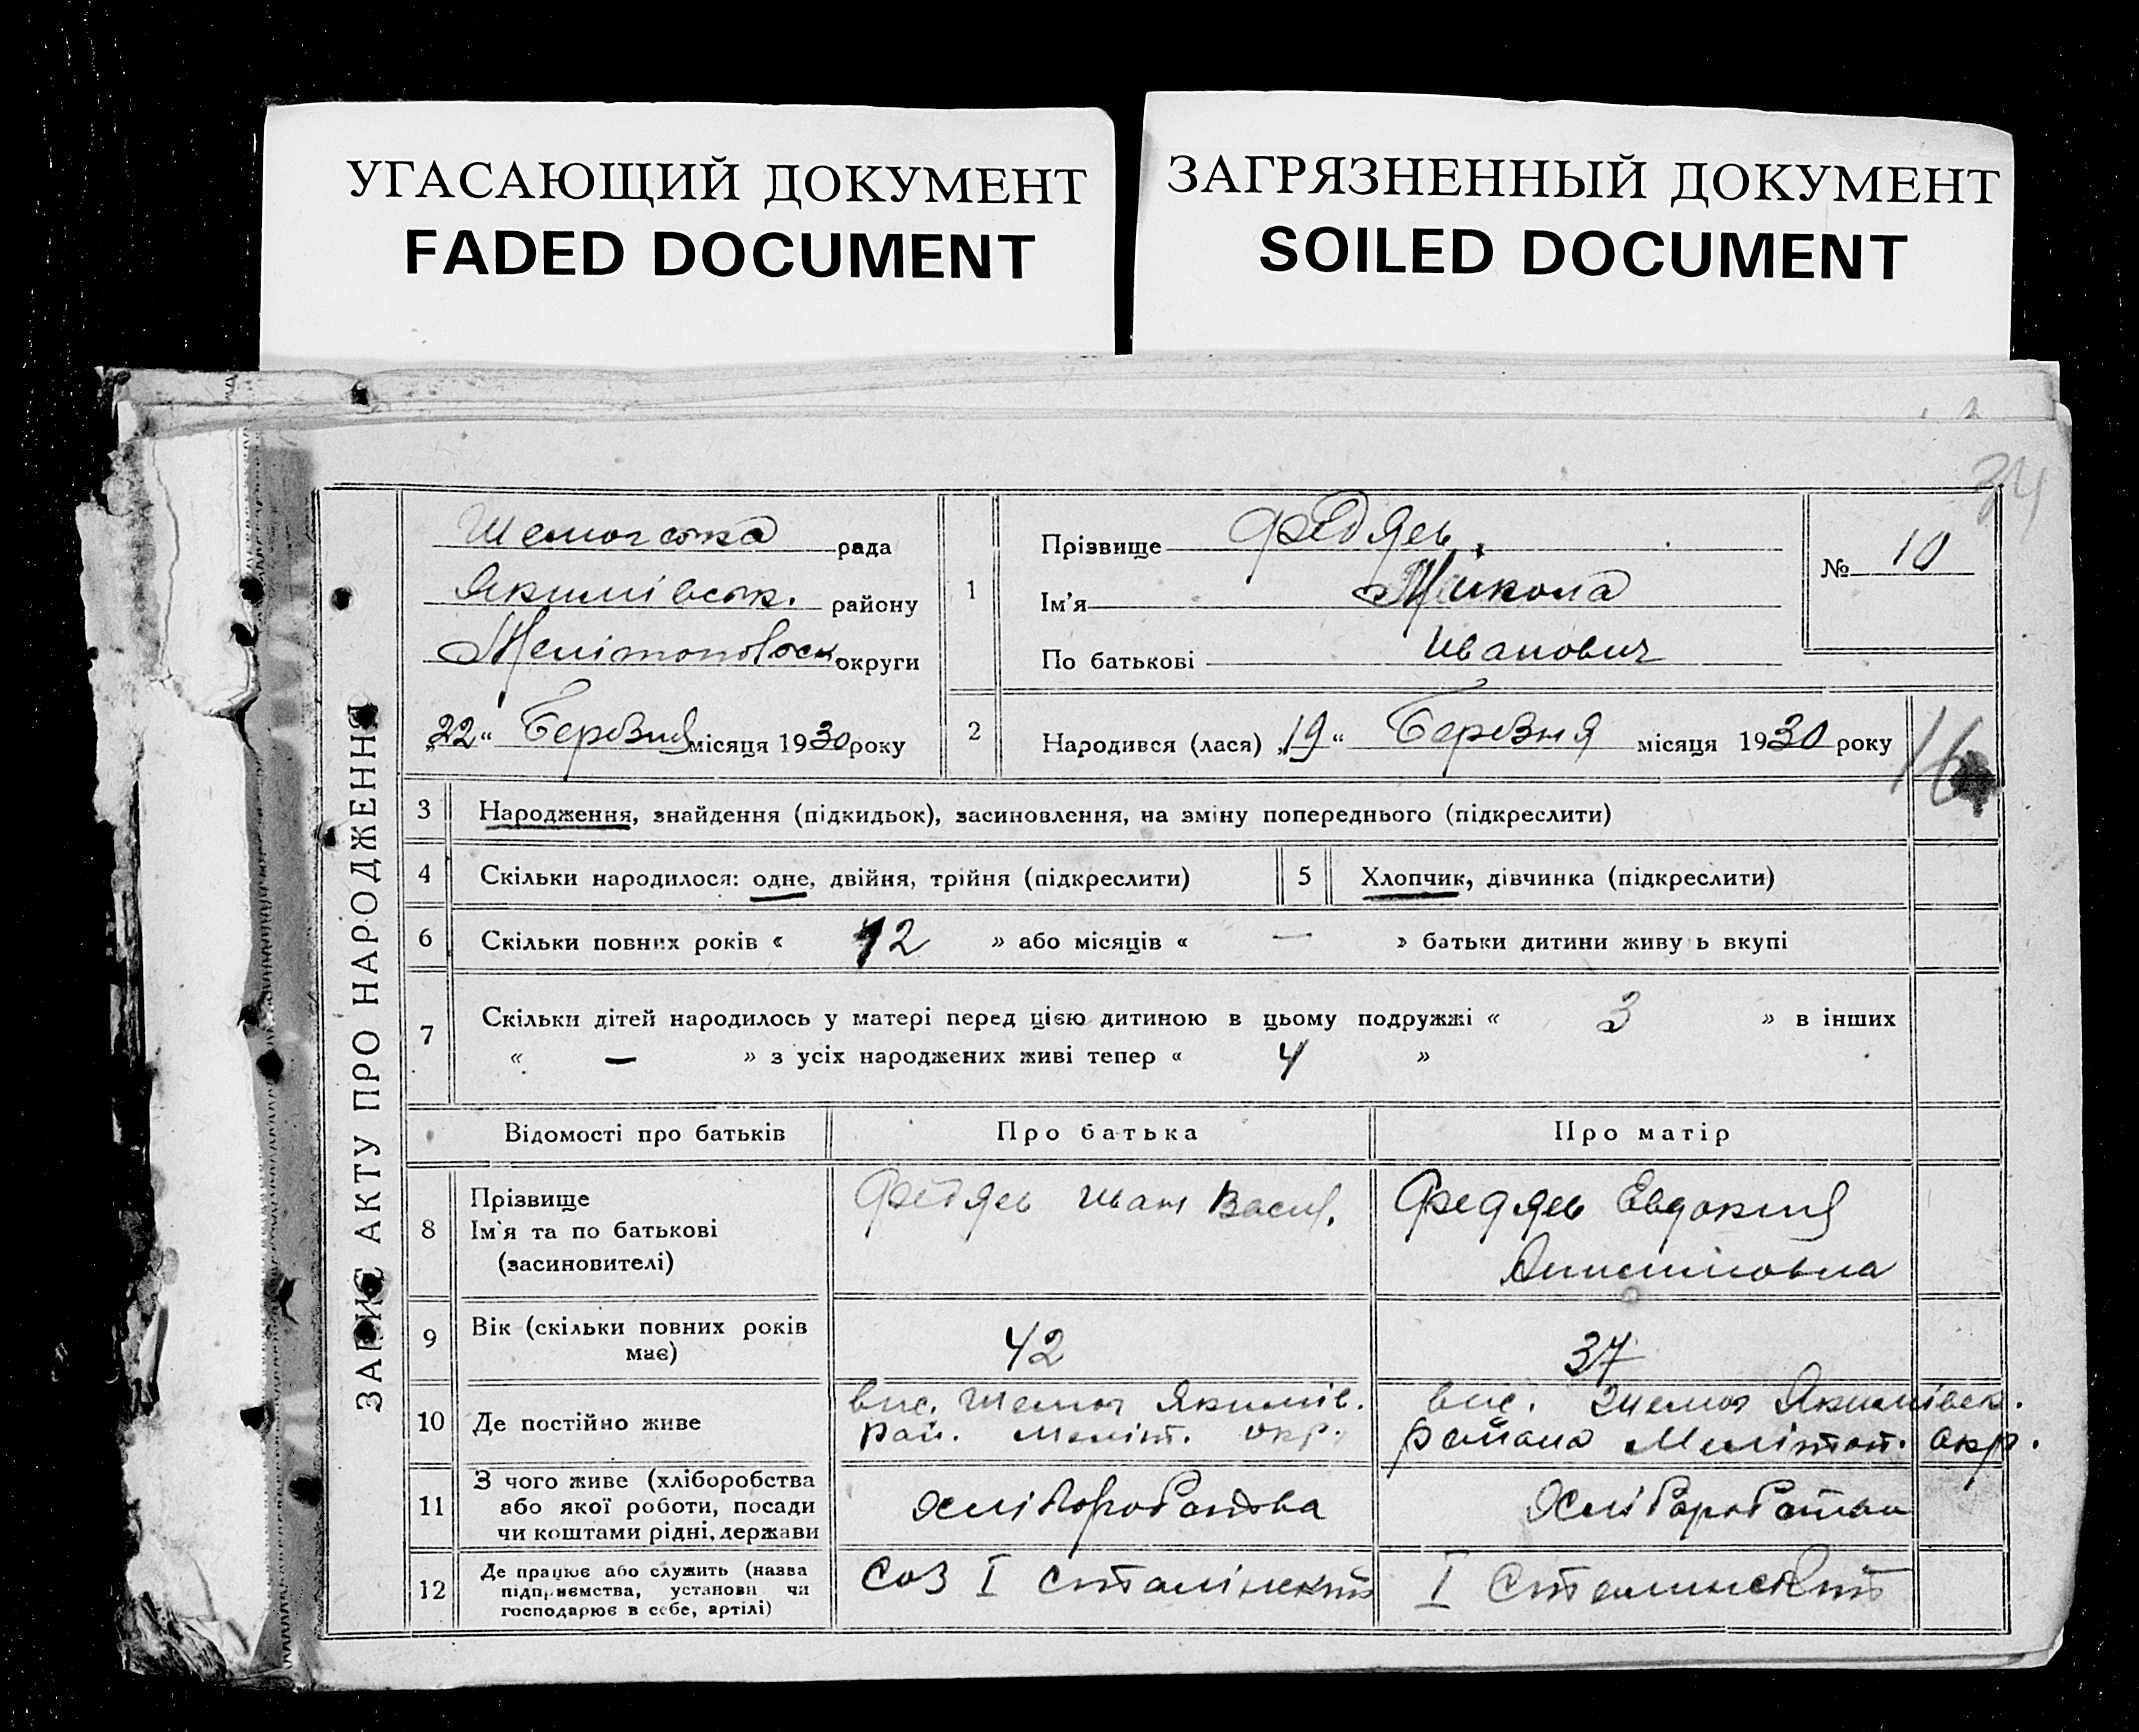 УГАСАЮЩИЙ ДОКУМЕНТ
FADED DOCUMENT
ЗАГРЯЗНЕННЫЙ ДОКУМЕНТ
SOILED DOCUMENT
34
ЗАПИС АКТУ ПРО НАРОДЖЕННЯ
рада
Якимівськ. району
Мелітопольск округи
„22“ Березня місяця 1930 року
1
Прізвище Федяев
Ім'я Микола
По батькові Иванович
№ 10
2
Народився (лася) „19“ Березня місяця 1930 року
16
3 Народження, знайдення (підкидьок), засиновлення, на зміну попереднього (підкреслити)
4 Скільки народилося: одне, двійня, трійня (підкреслити)
5 Хлопчик, дівчинка (підкреслити)
6 Скільки повних років « 12 » або місяців « — » батьки дитини живуть вкупі
7 Скільки дітей народилось у матері перед цією дитиною в цьому подружжі « 3 » в інших
« — » з усіх народжених живі тепер « 4 »
Відомості про батьків
Про батька
Про матір
8
Прізвище
Ім'я та по батькові
(засиновителі)
Федяев Иван Васил.
Федяев Евдокия
9
Вік (скільки повних років
має)
42
37
10 Де постійно живе
вис. Шемот Якимів.
рай. Меліт. окр.
вис. Шемот Якимівск.
района Мелітоп. окр.
11
З чого живе (хліборобства
або якої роботи, посади
чи коштами рідні, держави
Хліборобства
Хліборобства
12
Де працює або служить (назва
підприємства, установи чи
господарює в себе, артілі)
Соз I
I